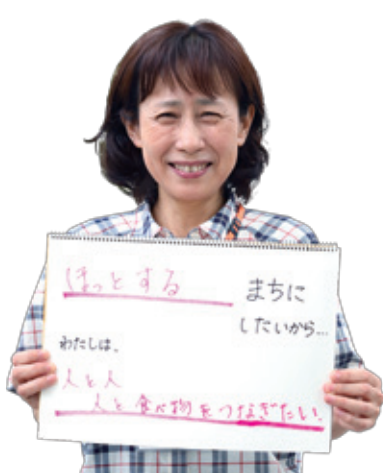 ほっとする まちに
したいから…
わたしは、
人と人
人と食べ物をつなぎたい。